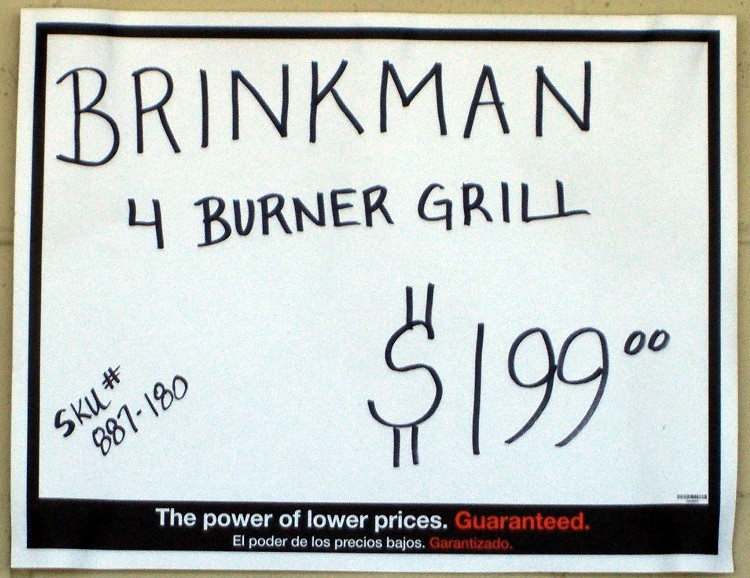 BRINKMAN
4 BURNER GRILL
$199.00
SKU#
887-180
The power of lower prices. Guaranteed.
El poder de los precios bajos. Garantizado.